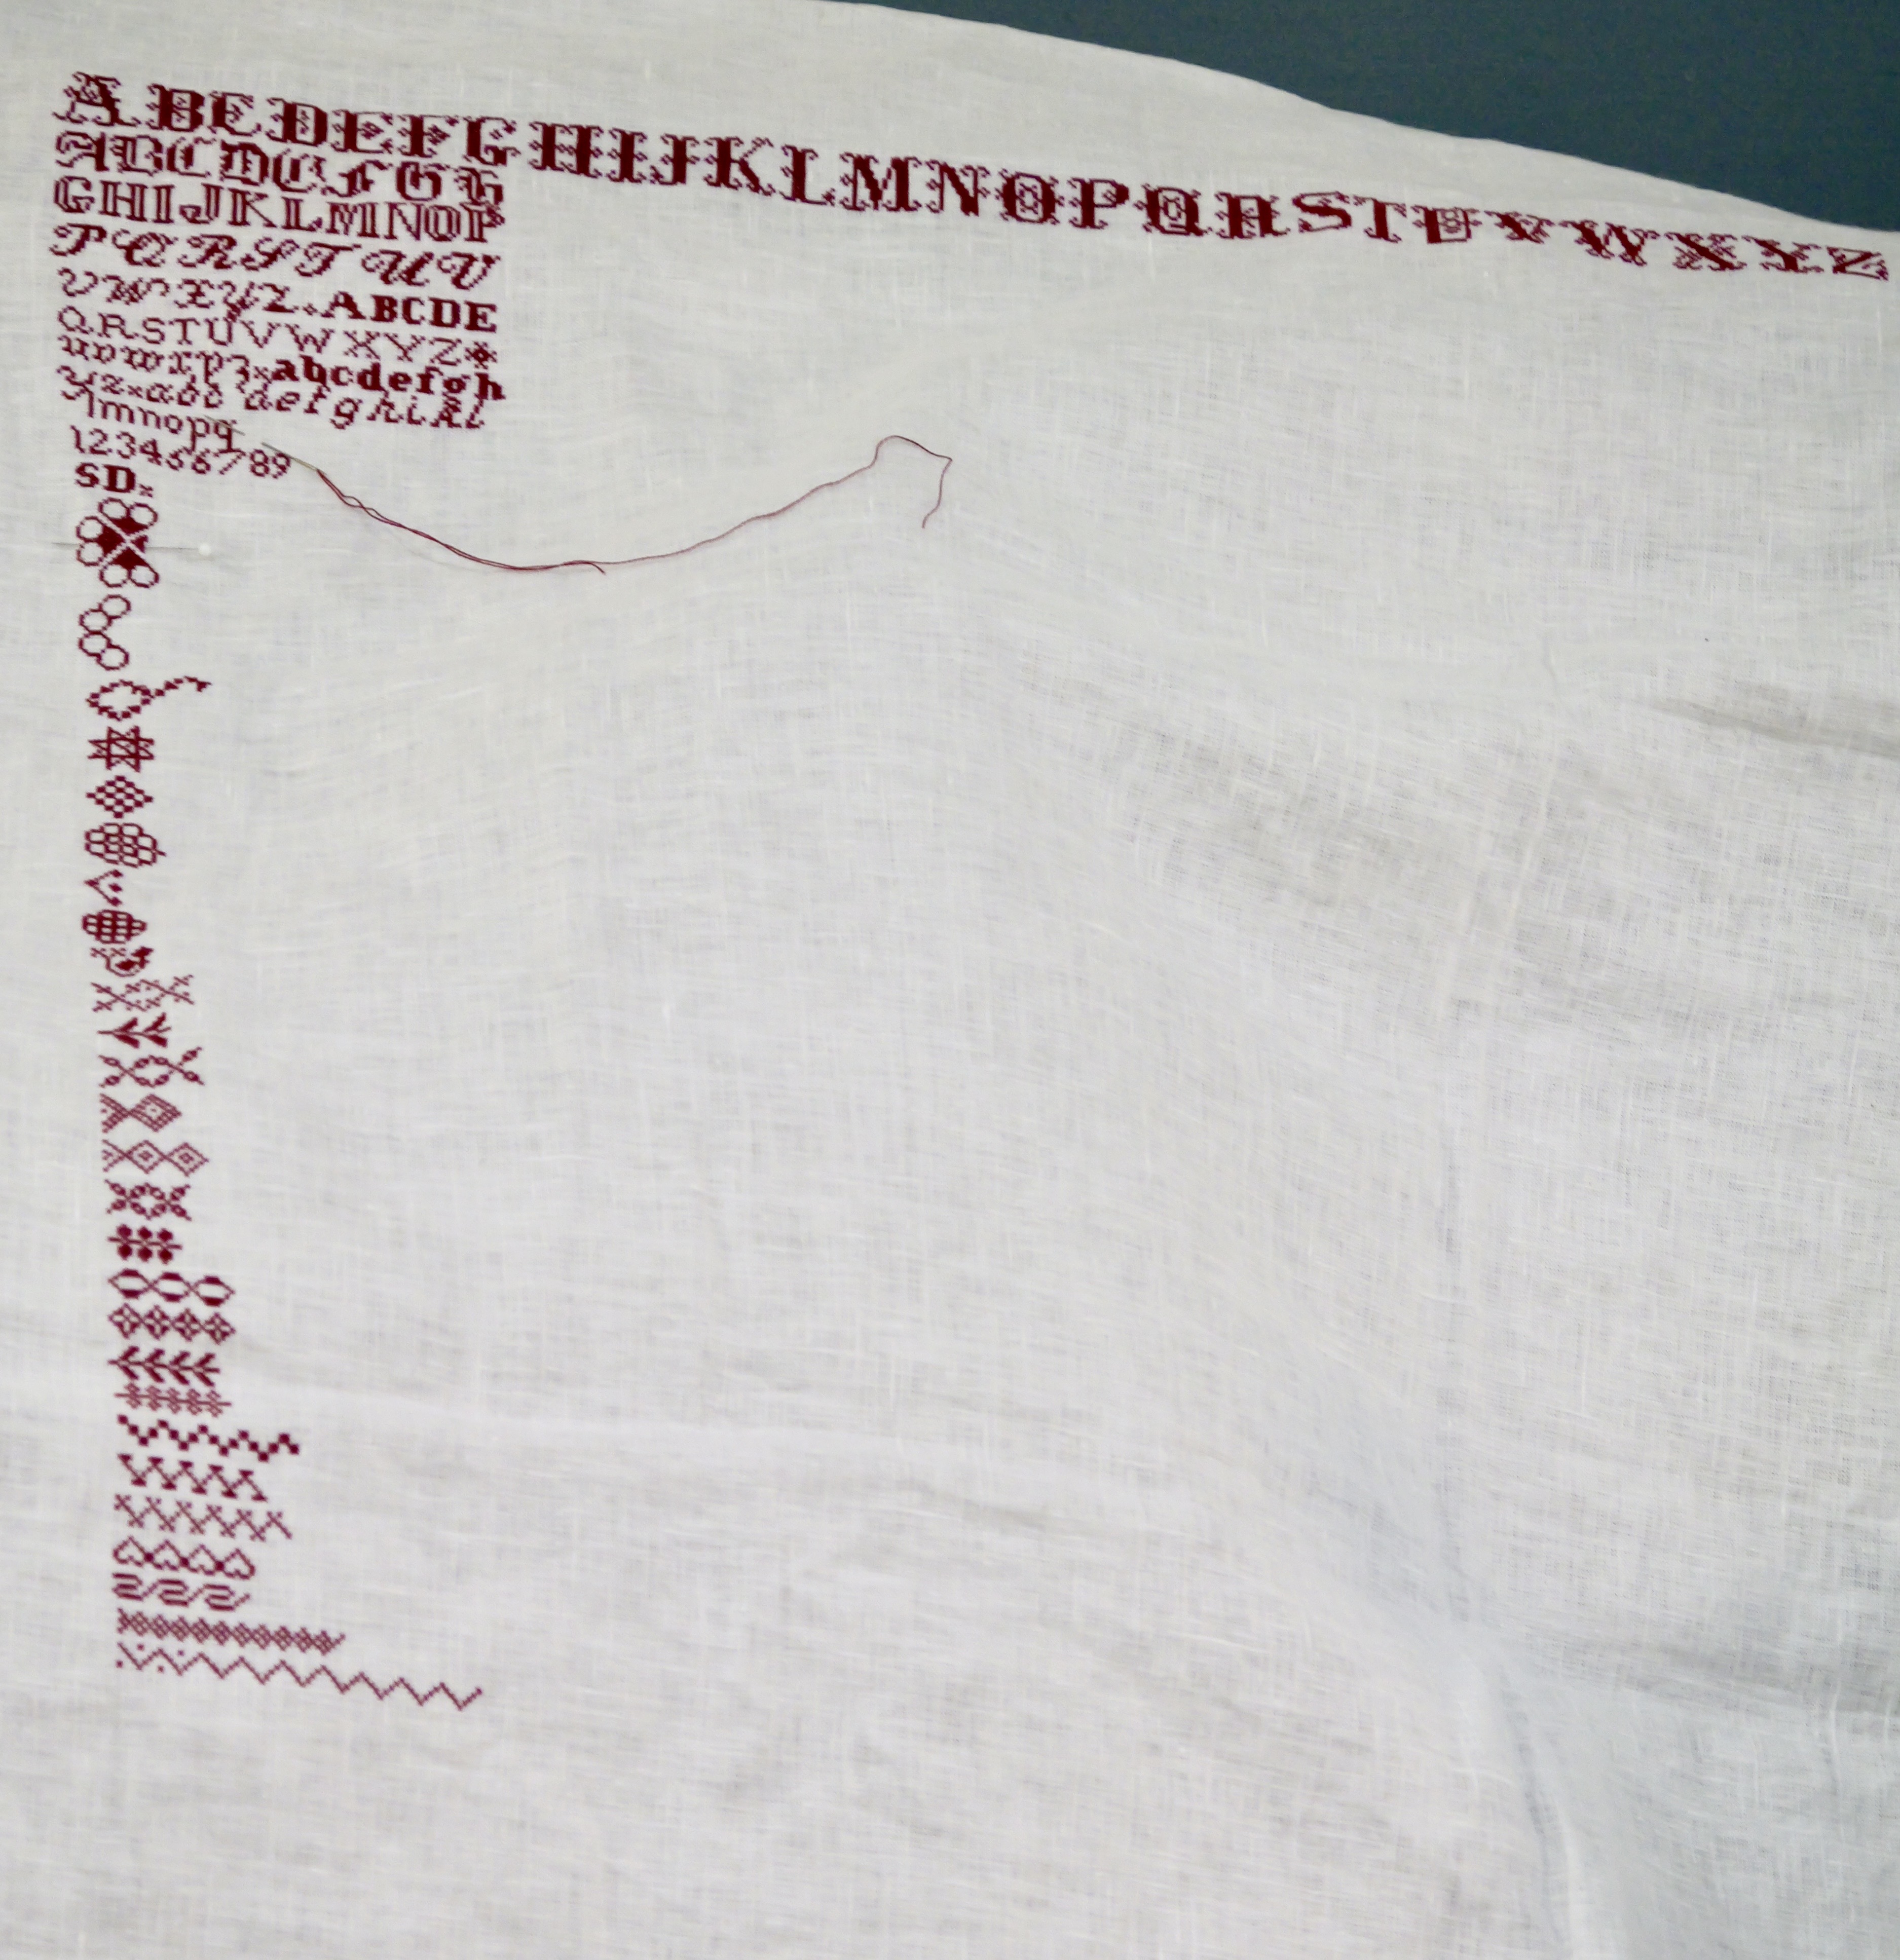 ABCDEFGHIJKLMNOPQRSTUVWXYZ
ABCDEFGH
GHIJKLMNOP
PQRSTUV
VWXYZ ABCDE
QRSTUVWXYZ
uvwxyz abcdefgh
yz abc defghikl
lmnopq
123456789
SD